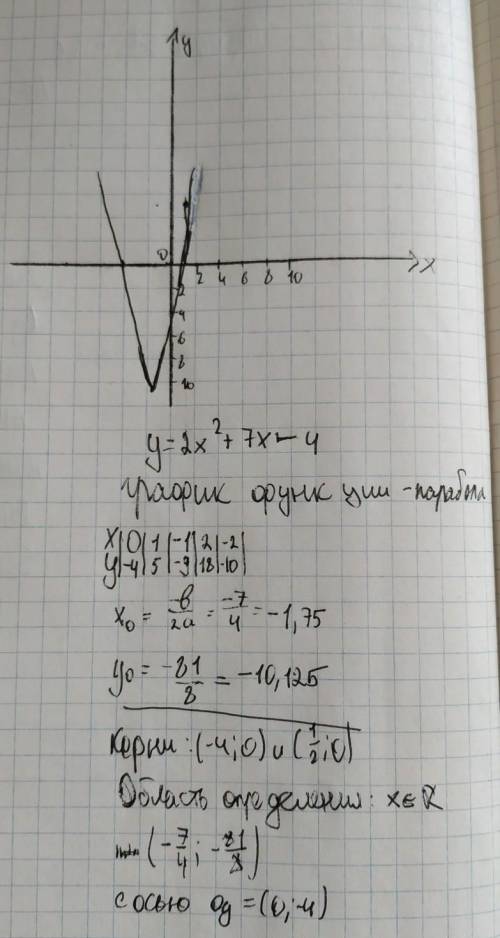 y
0
x
2 4 6 8 10
2
4
6
8
10
y = 2x² + 7x - 4
График функции - парабола
x | 0 | 1 | -1 | 2 | -2
y | -4 | 5 | -9 | 18 | -10
x₀ = -b/2a = -7/4 = -1,75
y₀ = -81/8 = -10,125
Корни: (-4; 0) и (1/2; 0)
Область определения: x ∈ R
(-7/4; -81/8)
с осью oy = (0; -4)